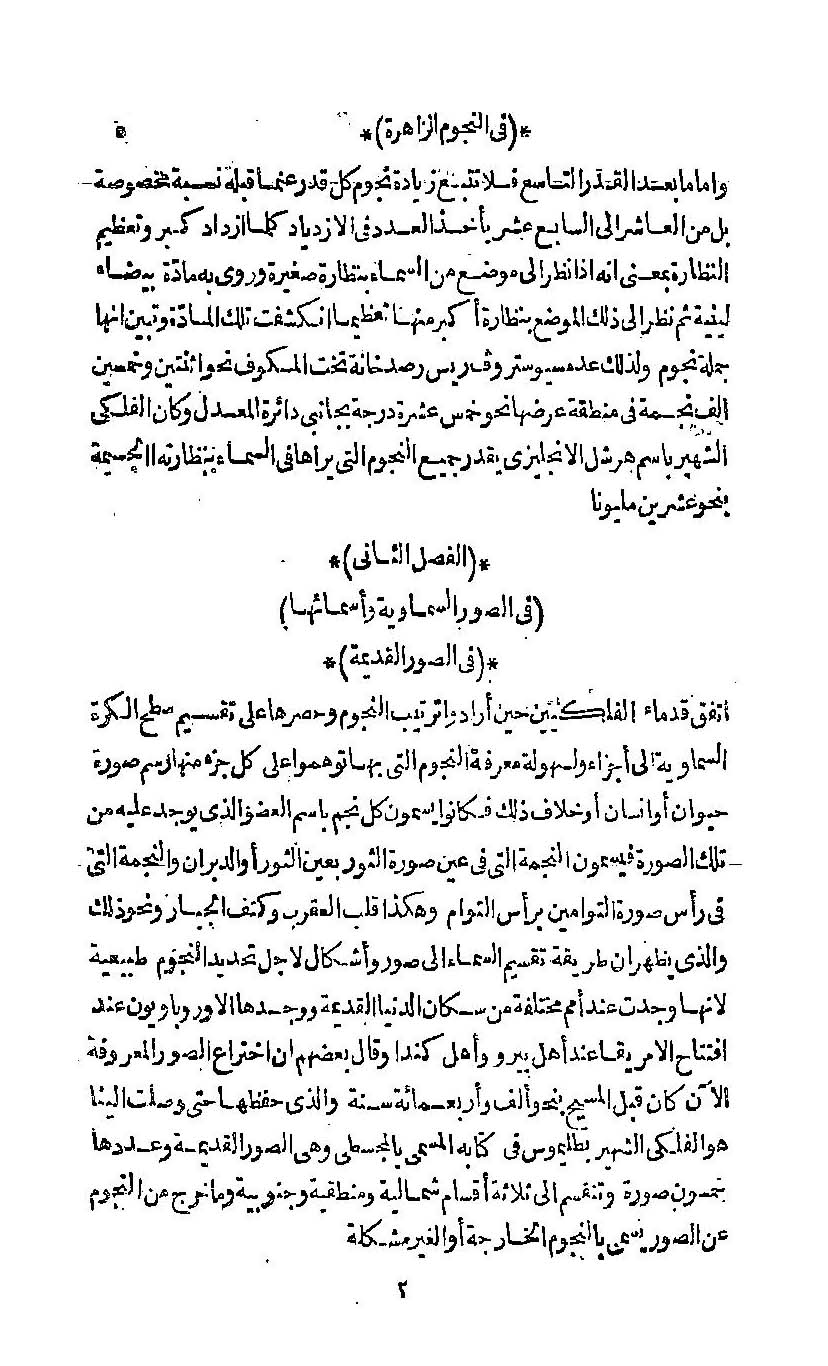 *(فى النجوم الزاهرة)* ٥
واما ما بعد القدر التاسع فلا تتبع زيادة نجوم كل قدر عما قبله نسبة مخصوصة
بل من العاشر الى السابع عشر يأخذ العدد فى الازدياد كلما ازداد كبر وتعظيم
النظارة بمعنى انه اذا نظر الى موضع من السماء بنظارة صغيرة وروى به مادّة بيضاء
لبنية ثم نظر الى ذلك الموضع بنظارة أكبر منها تعظيما انكشفت تلك المادّة وتبين انها
جملة نجوم ولذلك عد مسيو ستروف رئيس رصدخانة تحت المسكوف نحو اثنتين وخمسين
الف نجمة فى منطقة عرضها نحو خمس عشرة درجة بجانبى دائرة المعدل وكان الفلكى
الشهير باسم هرشل الانجليزى يقدر جميع النجوم التى يراها فى السماء بنظارته الجسيمة
بنحو عشرين مليونا
*(الفصل الثانى)*
(فى الصور السماوية وأسمائها)
*(فى الصور القديمة)*
اتفق قدماء الفلكيين حين أرادوا ترتيب النجوم وحصرها على تقسيم سطح الكرة
السماوية الى أجزاء ولسهولة معرفة النجوم التى بها توهموا على كل جزء منها رسم صورة
حيوان أو انسان أو خلاف ذلك فكانوا يسمون كل نجم باسم العضو الذى يوجد عليه من
تلك الصورة فيسمون النجمة التى فى عين صورة الثور بعين الثور أو الدبران والنجمة التى
فى رأس صورة التوامين برأس التوام وهكذا قلب العقرب وكتف الجبار ونحو ذلك
والذى يظهر ان طريقة تقسيم السماء الى صور وأشكال لاجل تحديد النجوم طبيعية
لانها وجدت عند أمم مختلفة من سكان الدنيا القديمة ووجدها الاوروباويون عند
افتتاح الامريقا عند أهل بيرو وأهل كندا وقال بعضهم ان اختراع الصور المعروفة
الآن كان قبل المسيح بنحو ألف وأربعمائة سنة والذى حفظها حتى وصلت الينا
هو الفلكى الشهير بطليموس فى كتابه المسمى بالمجسطى وهى الصور القديمة وعددها
خمسون صورة وتنقسم الى ثلاثة أقسام شمالية ومنطقية وجنوبية وما خرج عن النجوم
عن الصور يسمى بالنجوم الخارجة أو الغير مشكلة
٢